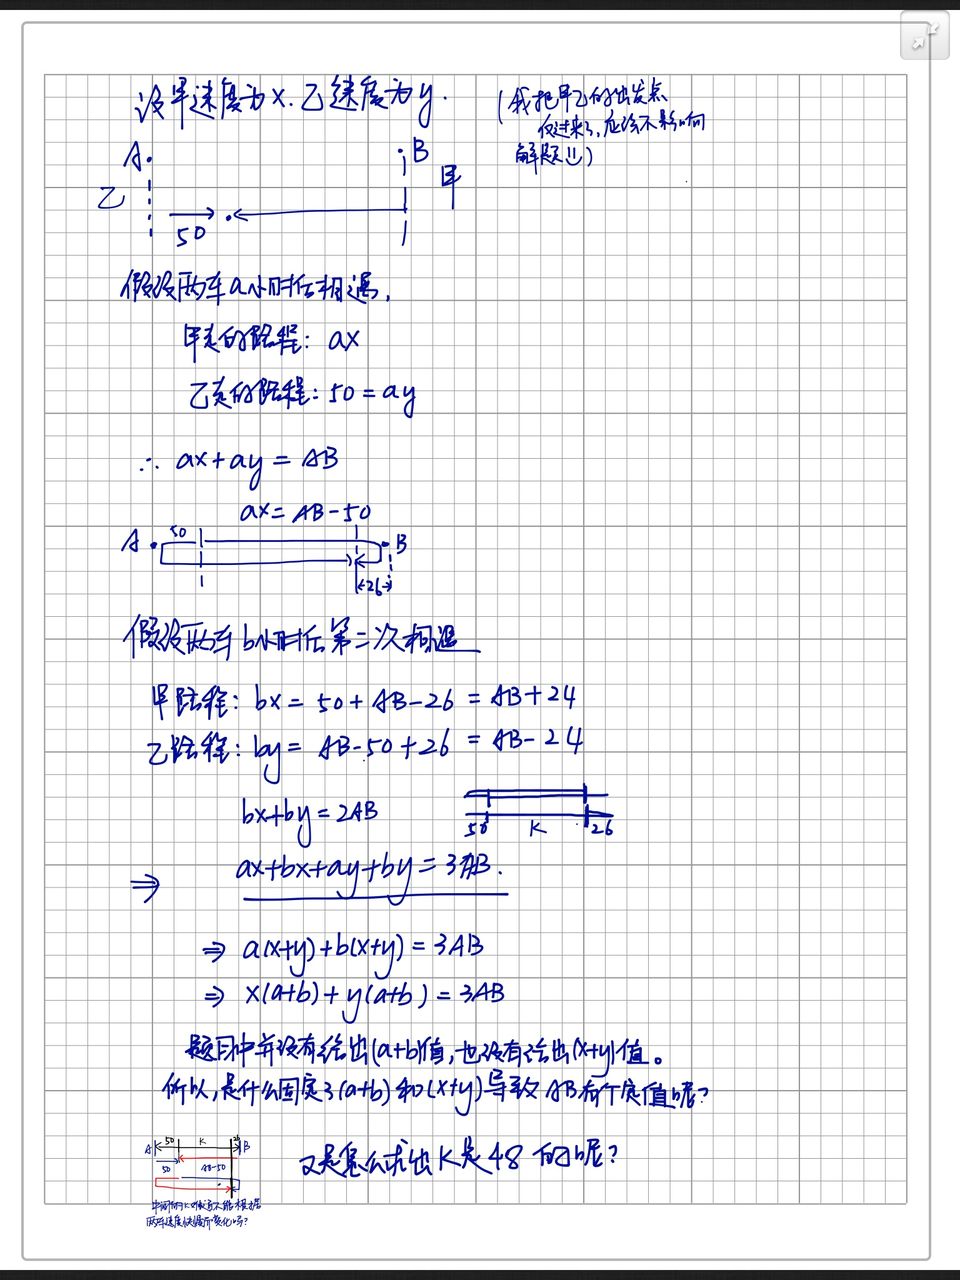 设甲速度为x.乙速度为y.
(我把甲乙的出发点
仅过来了,应该不影响
解题!!)
A
B
乙
甲
50
假设两车a小时后相遇,
甲走的路程: ax
乙走的路程: 50=ay
∴ ax+ay=AB
ax=AB-50
A 50 B
26
假设两车b小时后第二次相遇
甲路程: bx=50+AB-26=AB+24
乙路程: by=AB-50+26=AB-24
bx+by=2AB
50 K 26
⇒ ax+bx+ay+by=3AB.
⇒ a(x+y)+b(x+y)=3AB
⇒ x(a+b)+y(a+b)=3AB
题目中并没有给出(a+b)值,也没有给出(x+y)值。
所以,是什么固定了(a+b)和(x+y)导致AB有个定值呢?
又是怎么求出K是48的呢?
A 50 K B
50 AB-50
两车速度快慢而变化吗?